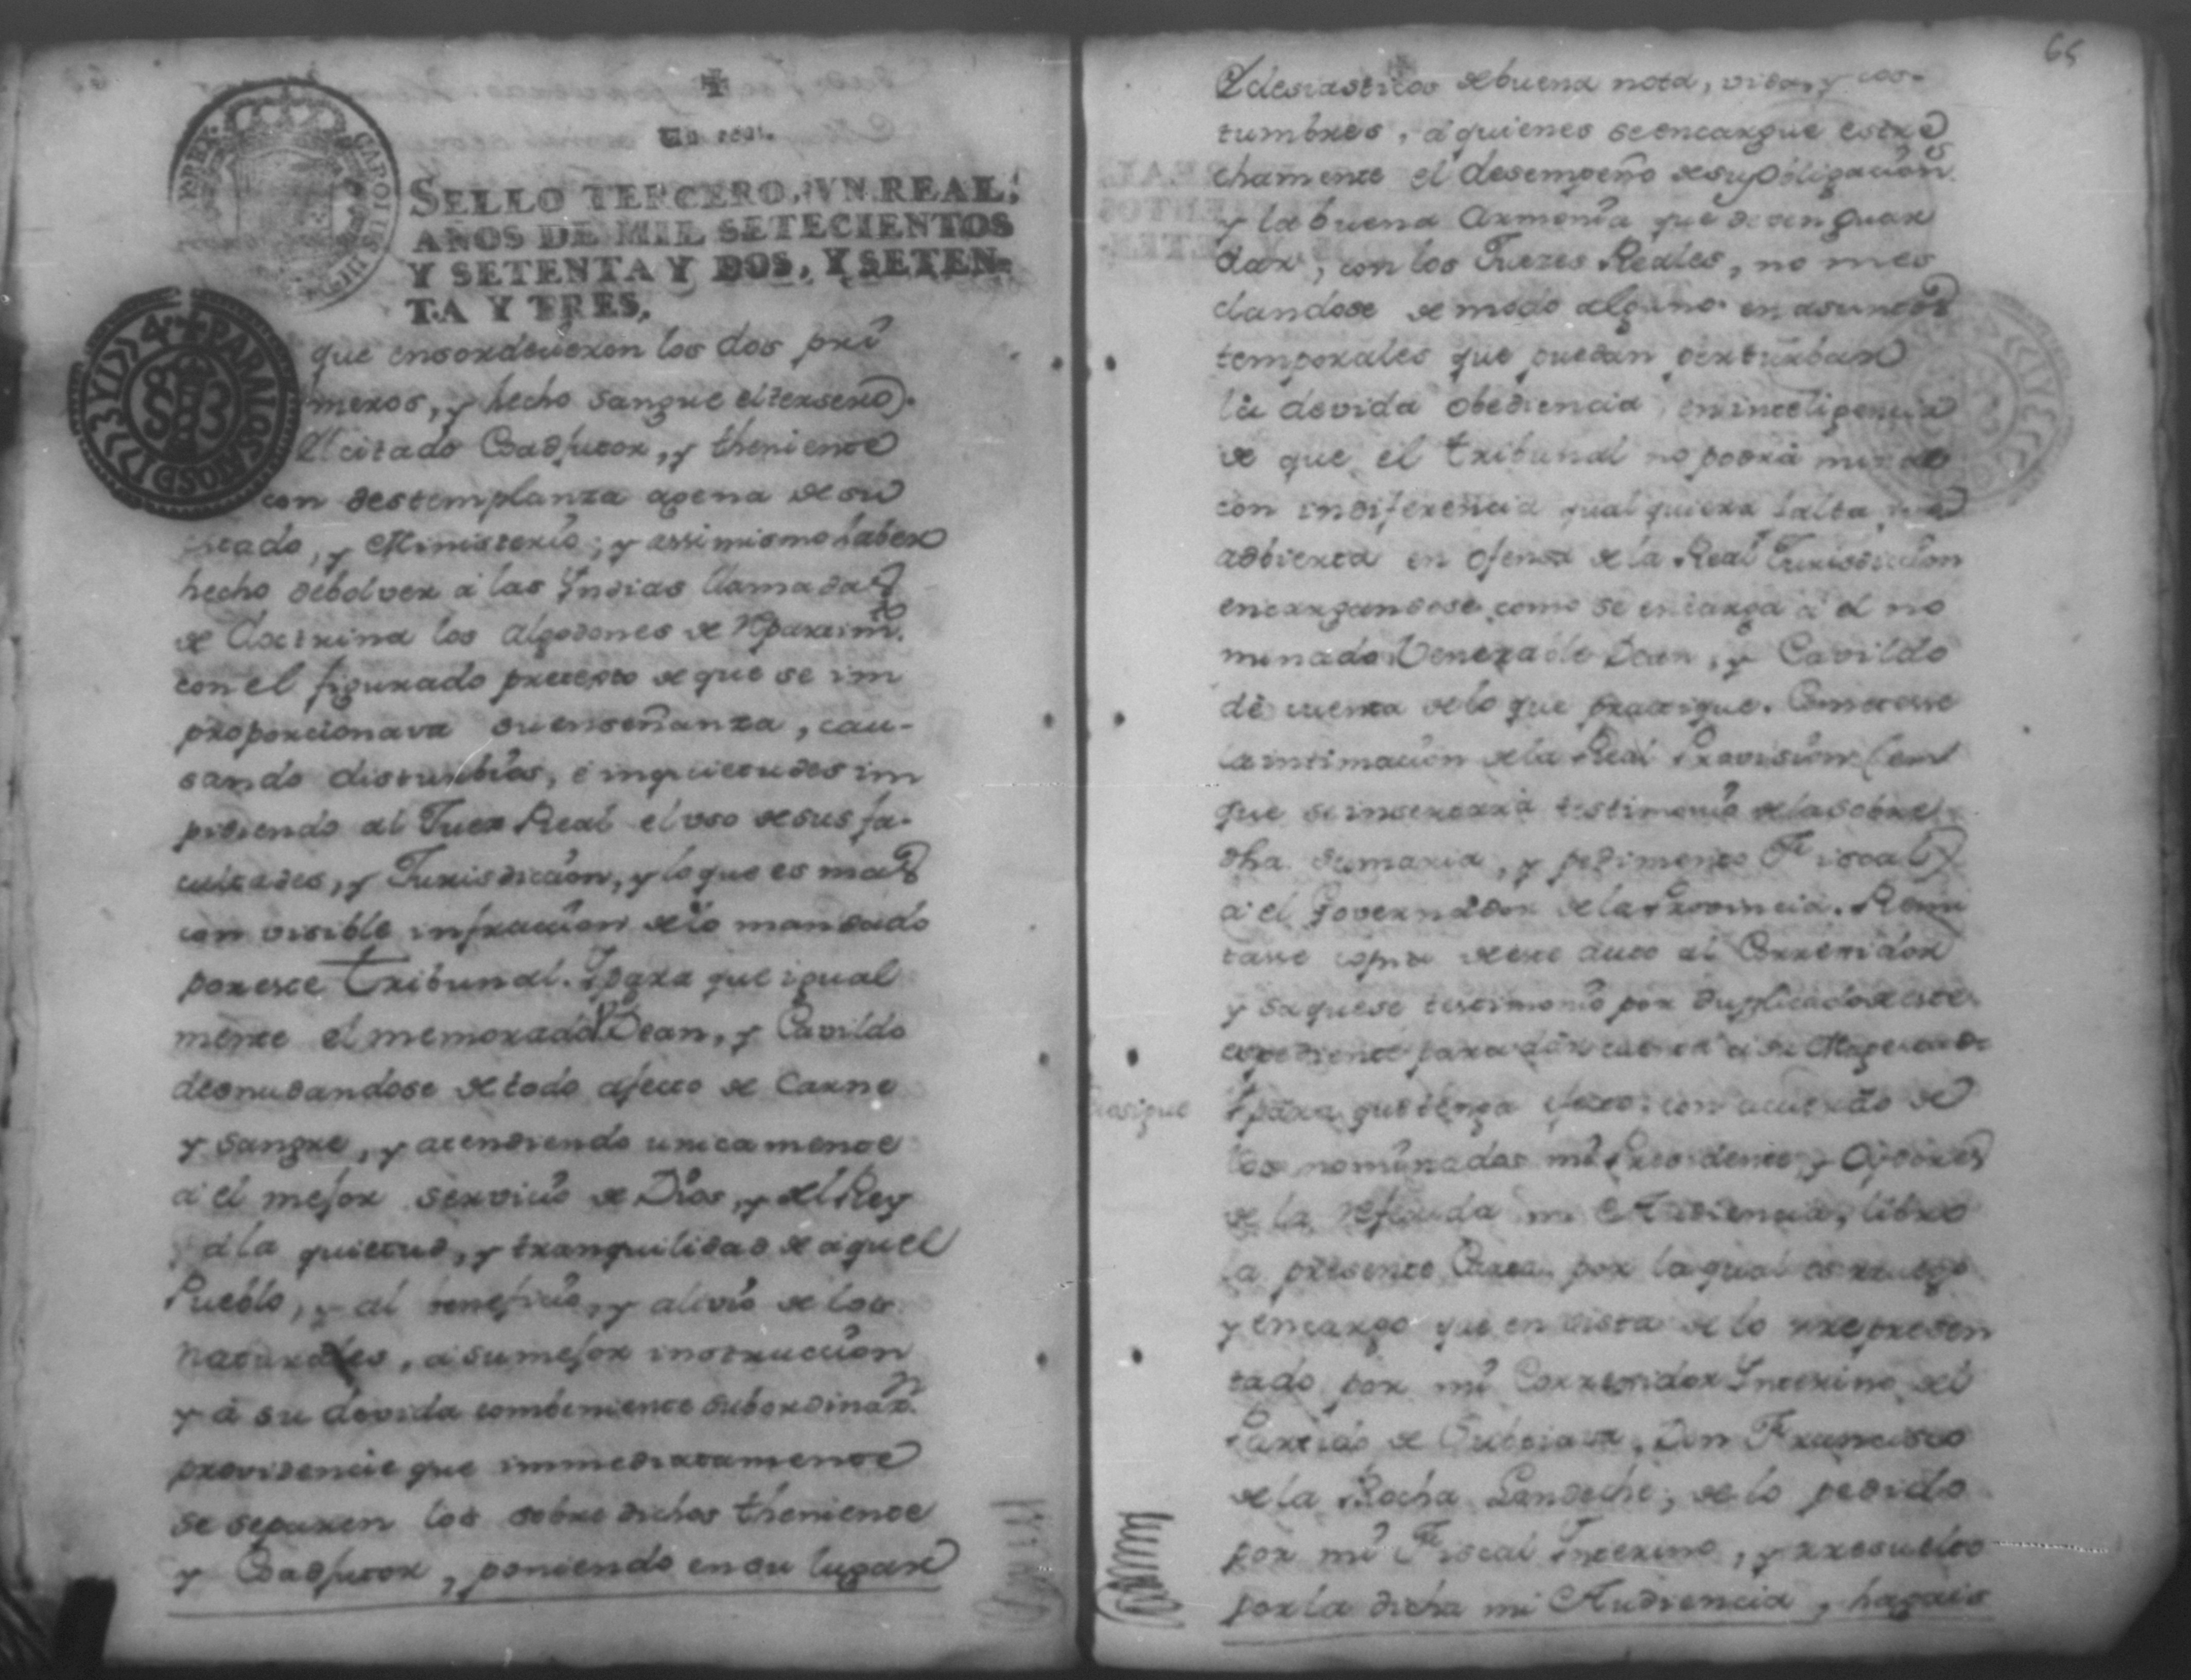 Un real.
SELLO TERCERO, VN REAL,
AÑOS DE MIL SETECIENTOS
Y SETENTA Y DOS, Y SETEN-
TA Y TRES,
CAROLUS III
PARA LOS AÑOS D 1773 Y 1774
que ensordecieron los dos pri
meros, y hecho sangre el tersero).
El citado Coadjutor, y theniente
con destemplanza agena de su
estado, y Ministerio; y assimismo haber
hecho debolver á las Indias llamadas
de Doctrina los algodones de Repartim.to
con el figurado pretexto de que se im
proporcionava su enseñanza, cau-
sando disturbios, é inquietudes im
pidiendo al Juez Real el uso de sus fa-
cultades, y Jurisdiccion, y lo que es mas
con visible infraccion de lo mandado
por este Tribunal. Y para que igual
mente el memorado V. Dean, y Cavildo
desnudandose de todo afecto de Carne
y sangre, y atendiendo unicamente
á el mejor servicio de Dios, y del Rey
á la quietud, y tranquilidad de aquel
Pueblo, y al beneficio, y alivio de los
naturales, á su mejor instruccion
y á su devida combeniente subordinaz.n
providencie que immediatamente
se separen los sobre dichos theniente
y Coadjutor, poniendo en su lugar
65
Eclesiasticos de buena nota, vida, y cos-
tumbres, á quienes se encargue estre
chamente el desempeño de su obligacion
y la buena Armonia que deven guar
dar, con los Juezes Reales, no mes
clandose de modo alguno en asuntos
temporales que puedan perturbar
la devida obediencia, en inteligencia
de que el tribunal no podrá mirar
con indiferencia qualquiera falta que
adbierta en ofensa de la Real Jurisdiccion
encargandose como se encarga á el no
minado Venerable Dean, y Cavildo
dé cuenta de lo que practique. Cometesse
la intimacion de la Real Provision (en
que se insertará testimonio de la sobre
dha sumaria, y pedimento Fiscal)
á el Governador de la Provincia. Remi
tasse copia de este auto al Corregidor
y saquese testimonio por duplicado de este
expediente para dar cuenta á su Magestad
Prosigue
Y para que tenga efecto, con acuerdo de
los nominados mi Presidente, y Oydores
de la referida mi Audiencia, libro
la presente Carta por la qual os ruego
y encargo que en vista de lo representa
tado por mi Corregidor Interino del
Partido de Subtiava, Don Francisco
de la Rocha Landeche, de lo pedido
por mi Fiscal Interino, y rresuelto
por la dicha mi Audiencia, hagais